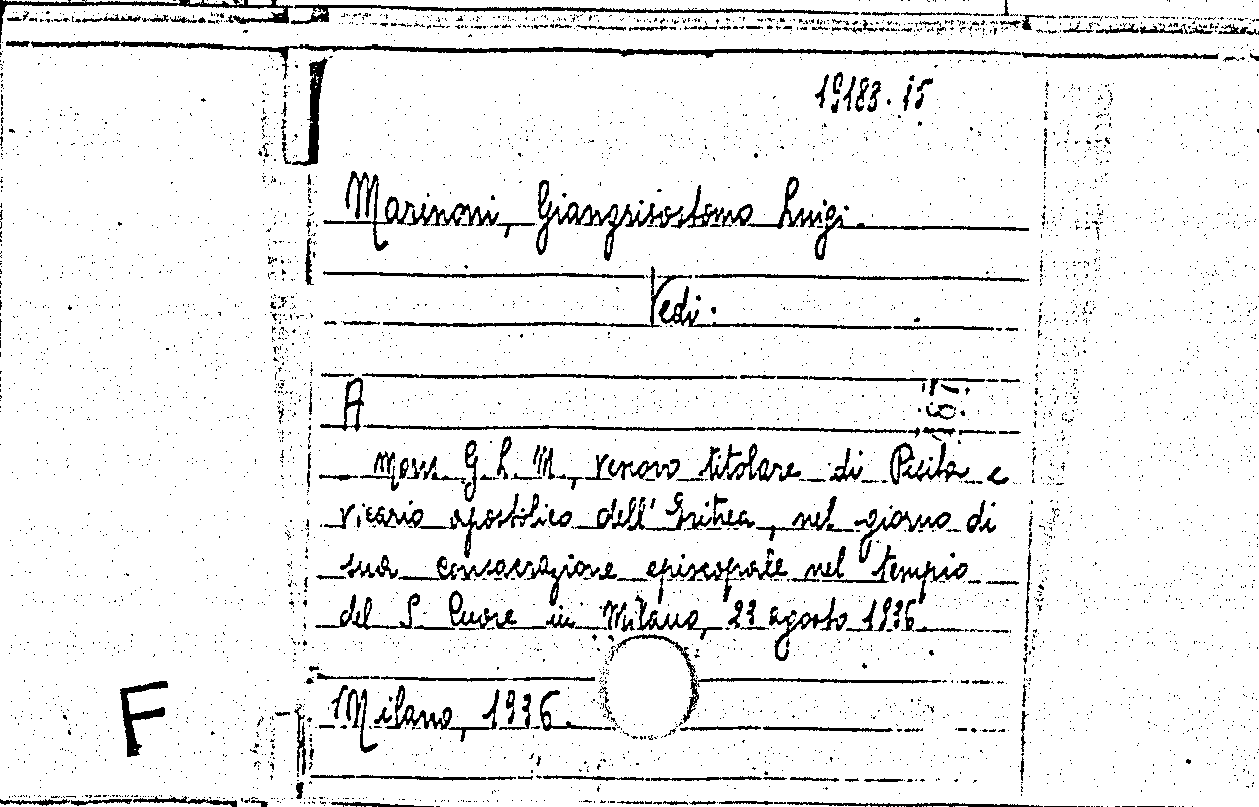 19183.15
Marinoni, Giangrisostomo Luigi.
Vedi:
A
167
Mons. G. L. M., vescovo titolare di Picita e
vicario apostolico dell'Eritrea, nel giorno di
sua consacrazione episcopale nel tempio
del S. Cuore in Milano, 23 agosto 1936.
Milano, 1936.
F